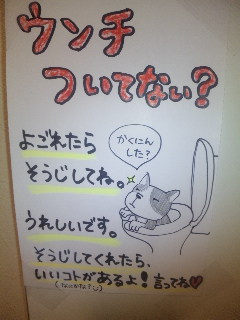 ウンチ
ついてない?
よごれたら
そうじしてね。
かくにん
した?
うれしいです。
そうじしてくれたら、
いいコトがあるよ!言ってね♥